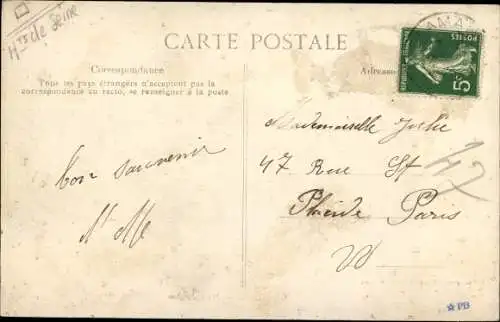 Hts de Seine
CARTE POSTALE
Correspondance
Tous les pays étrangers n'acceptent pas la
correspondance au recto, se renseigner à la poste
Adresse
POSTES
5c
Mademoiselle
47 Rue St
Paris
47
bon souvenir
PB